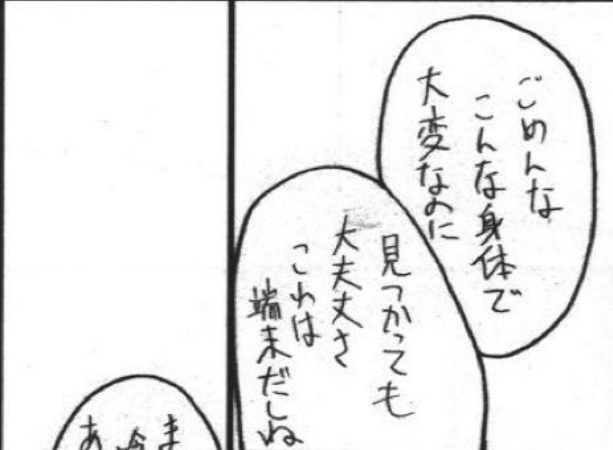 ごめんな
こんな身体で
大変なのに
見つかっても
大丈夫さ
これは
端末だしね
ま
あ